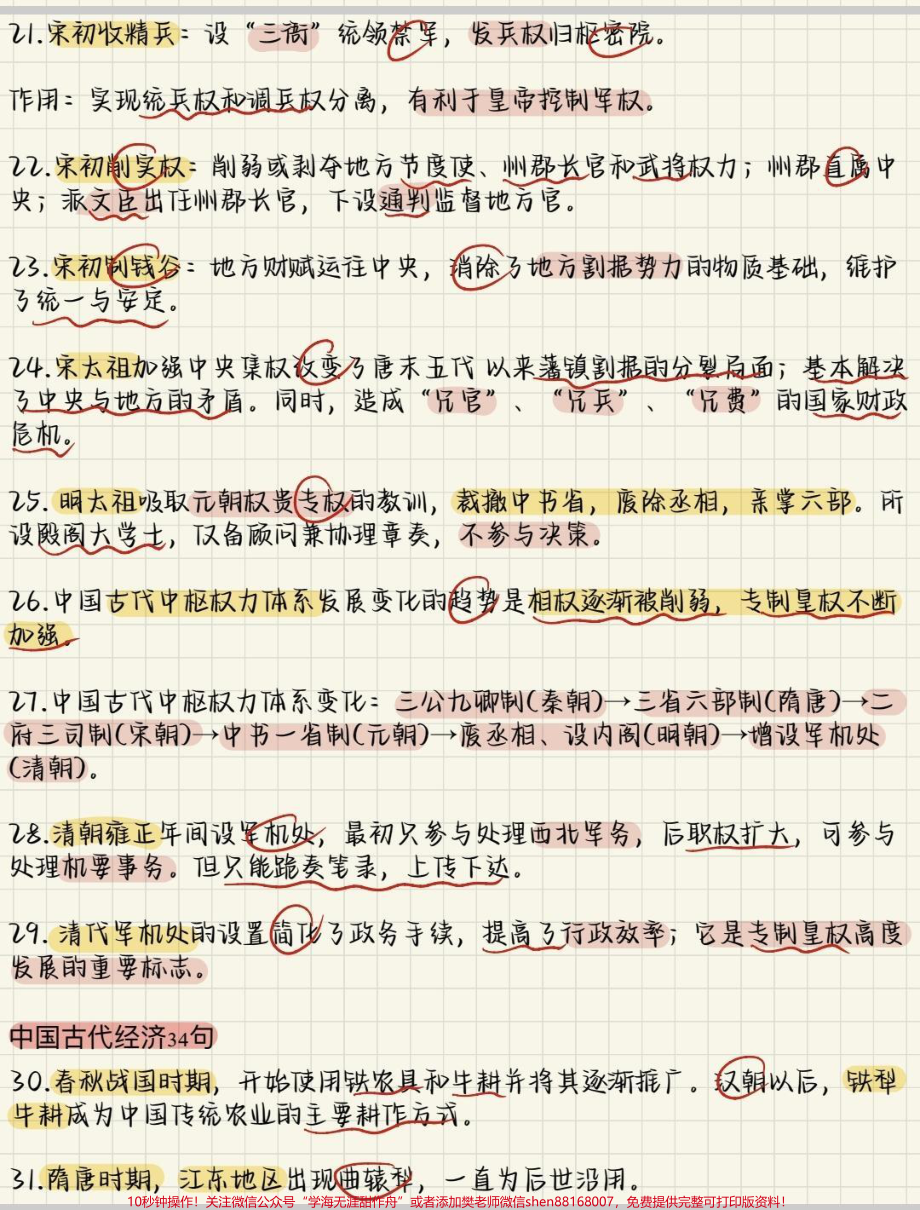 21.宋初收精兵：设“三衙”统领禁军，发兵权归枢密院。
作用：实现统兵权和调兵权分离，有利于皇帝控制军权。
22.宋初削实权：削弱或剥夺地方节度使、州郡长官和武将权力；州郡直属中
央；派文臣出任州郡长官，下设通判监督地方官。
23.宋初制钱谷：地方财赋运往中央，消除了地方割据势力的物质基础，维护
了统一与安定。
24.宋太祖加强中央集权改变了唐末五代以来藩镇割据的分裂局面；基本解决
了中央与地方的矛盾。同时，造成“冗官”、“冗兵”、“冗费”的国家财政
危机。
25.明太祖吸取元朝权贵专权的教训，裁撤中书省，废除丞相，亲掌六部。所
设殿阁大学士，仅备顾问兼协理章奏，不参与决策。
26.中国古代中枢权力体系发展变化的趋势是相权逐渐被削弱，专制皇权不断
加强。
27.中国古代中枢权力体系变化：三公九卿制(秦朝)→三省六部制(隋唐)→二
府三司制(宋朝)→中书一省制(元朝)→废丞相、设内阁(明朝)→增设军机处
(清朝)。
28.清朝雍正年间设军机处，最初只参与处理西北军务，后职权扩大，可参与
处理机要事务。但只能跪奏笔录，上传下达。
29.清代军机处的设置简化了政务手续，提高了行政效率；它是专制皇权高度
发展的重要标志。
中国古代经济34句
30.春秋战国时期，开始使用铁农具和牛耕并将其逐渐推广。汉朝以后，铁犁
牛耕成为中国传统农业的主要耕作方式。
31.隋唐时期，江东地区出现曲辕犁，一直为后世沿用。
10秒钟操作！关注微信公众号“学海无涯甜作舟”或者添加樊老师微信shen88168007，免费提供完整可打印版资料！